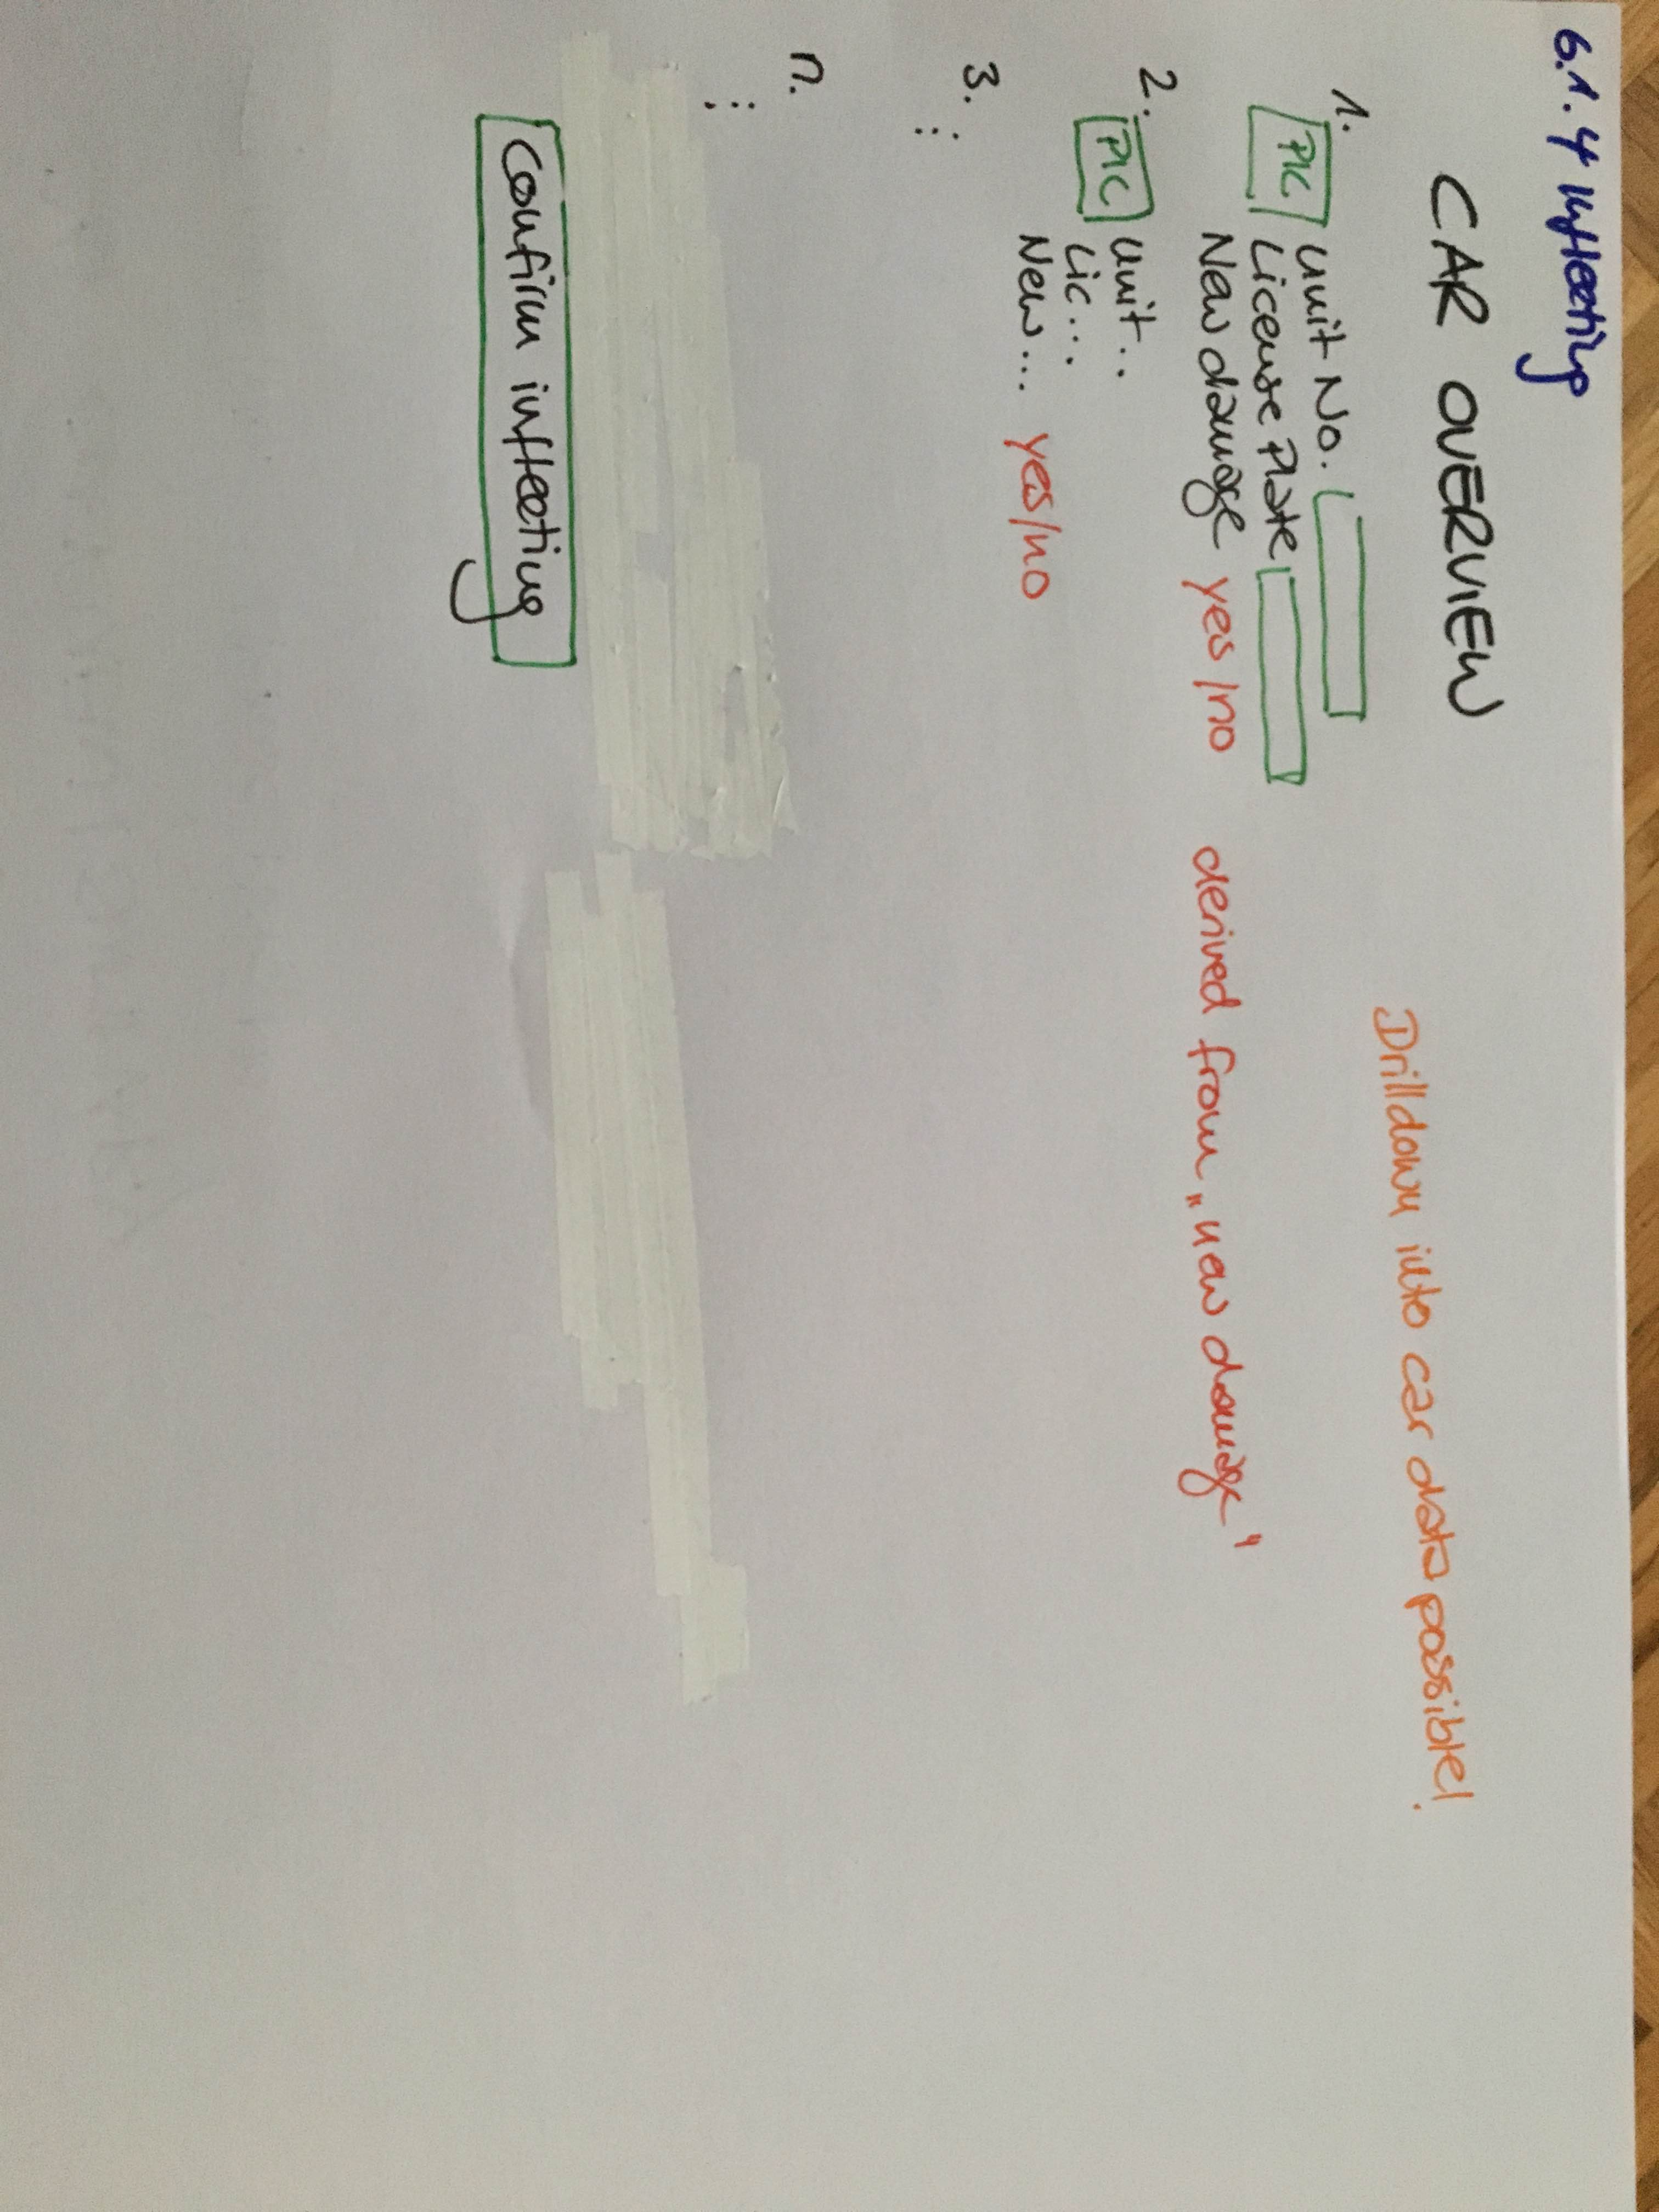 6.1.4 Infleeting
CAR OVERVIEW
Drilldown into car data possible!
1.
PIC
Unit No.
License Plate
New damage yes/no derived from „new damage"
2.
PIC
Unit...
Lic...
New... yes/no
3.
⋮
n.
⋮
Confirm infleeting